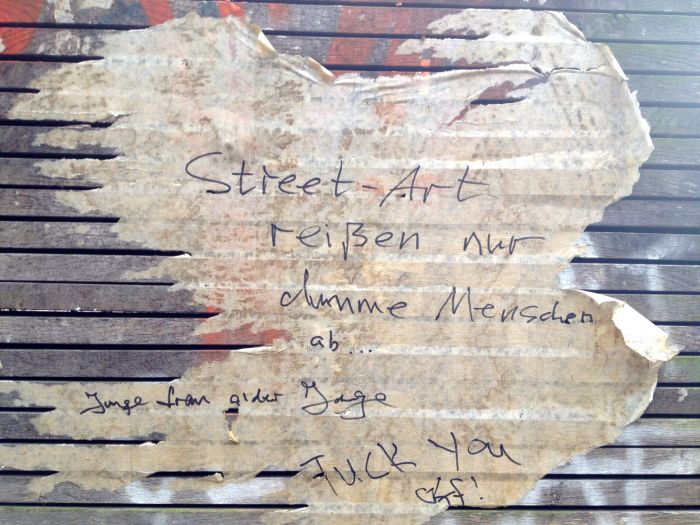 Street-Art
reißen nur
dumme Menschen
ab...
Junge frau
FUCK YOU